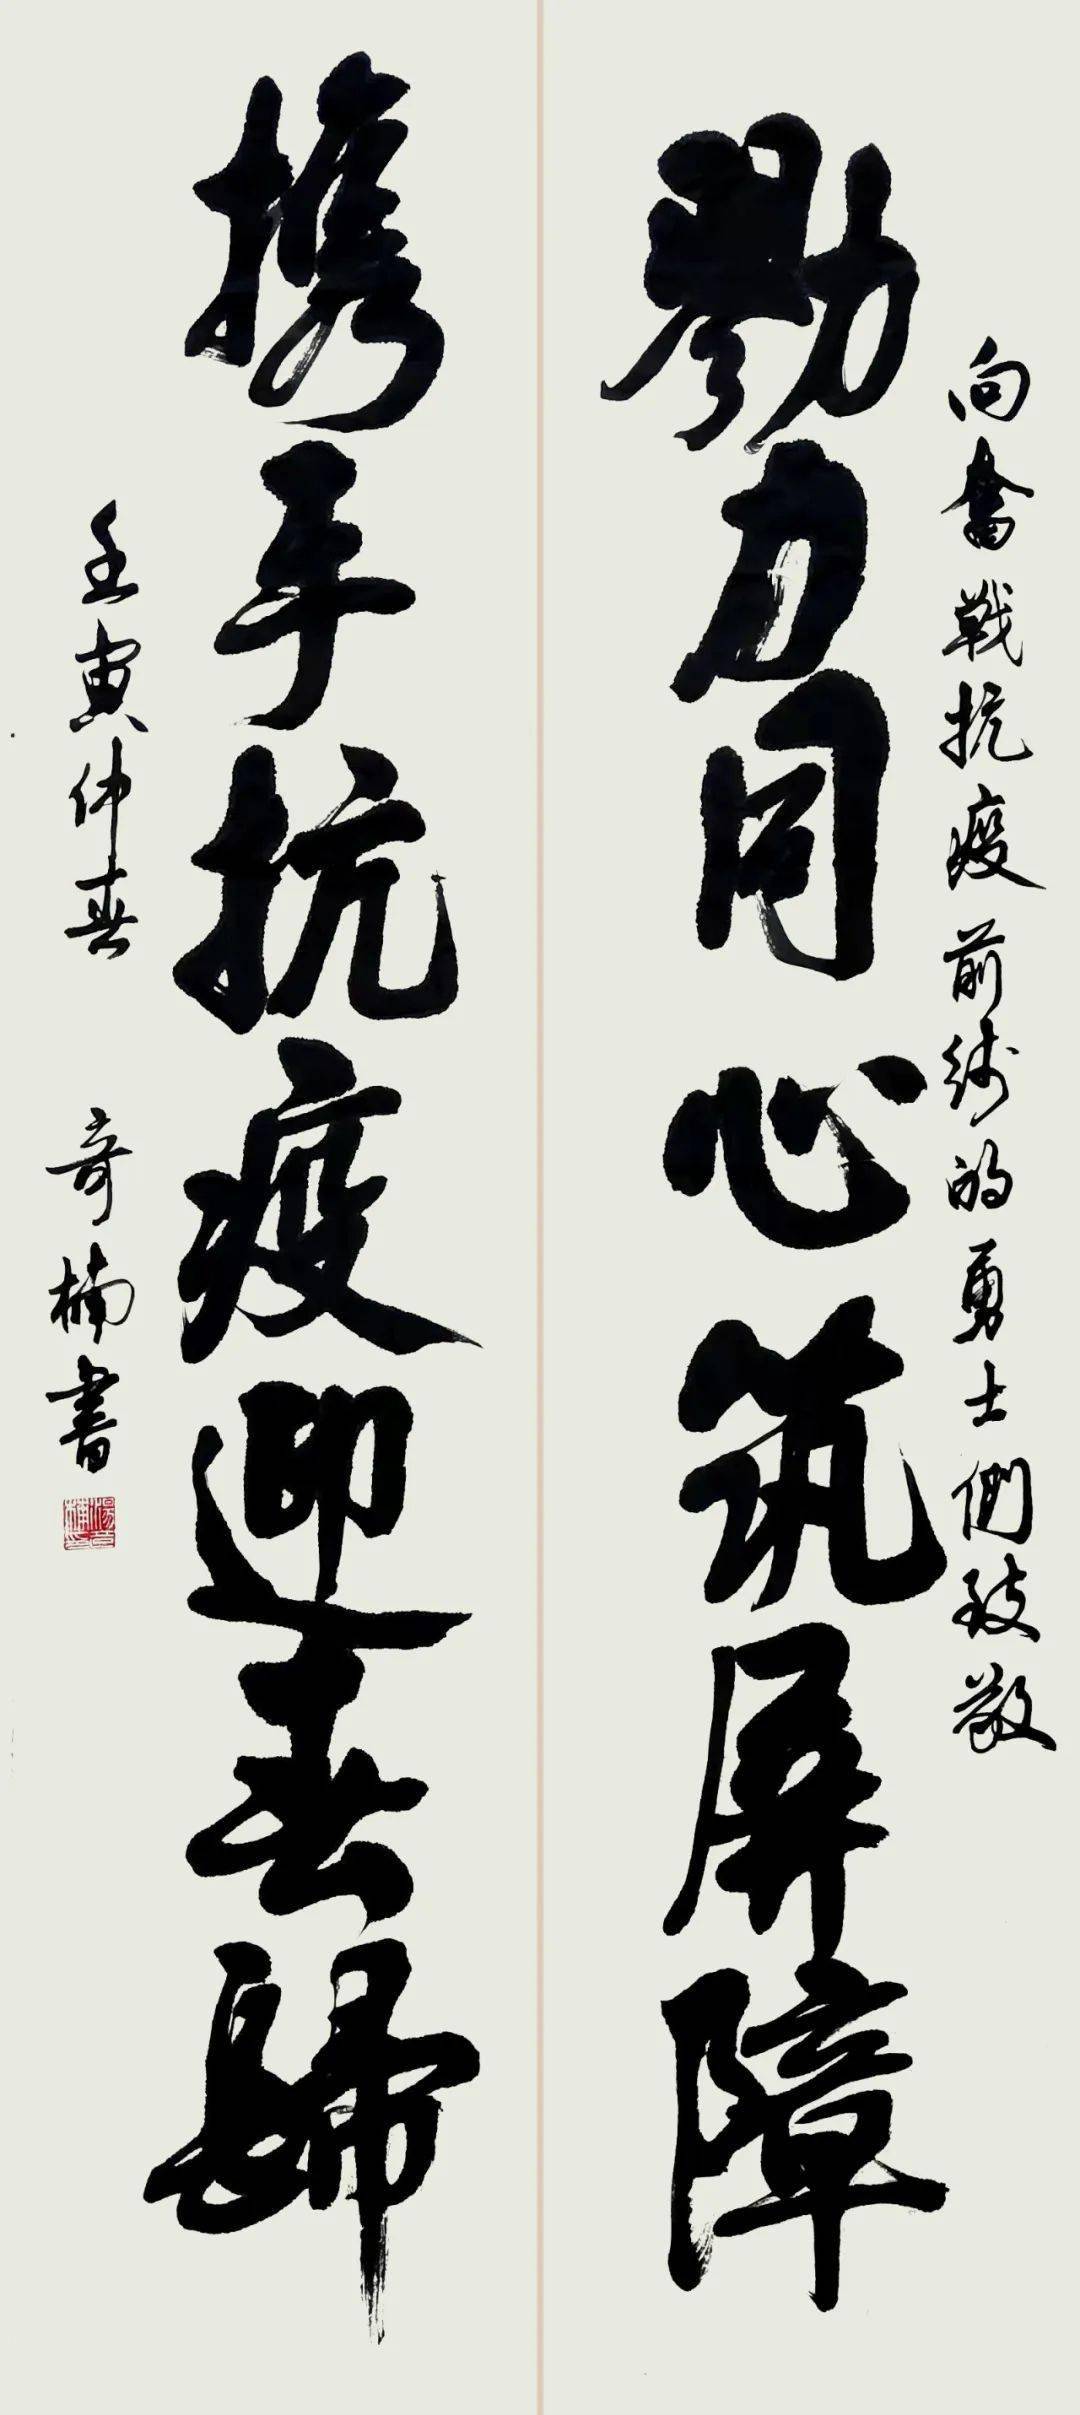 向奮戰抗疫前线的勇士們致敬
勠力同心筑屏障
携手抗疫迎春歸
壬寅仲春 奇楠書